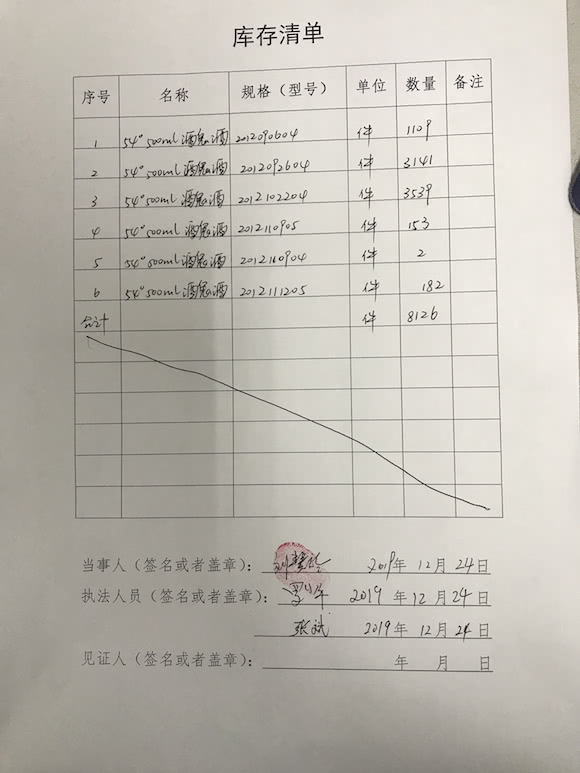 库存清单
序号 名称 规格（型号） 单位 数量 备注
1 54° 500ml 酒鬼酒 2012090604 件 1109
2 54° 500ml 酒鬼酒 2012092604 件 3141
3 54° 500ml 酒鬼酒 2012102204 件 3539
4 54° 500ml 酒鬼酒 2012110905 件 153
5 54° 500ml 酒鬼酒 2012110904 件 2
6 54° 500ml 酒鬼酒 2012111205 件 182
合计 件 8126
当事人（签名或者盖章）： 2019年 12月 24日
执法人员（签名或者盖章）： 2019年 12月 24日
张斌 2019年 12月 24日
见证人（签名或者盖章）： 年 月 日